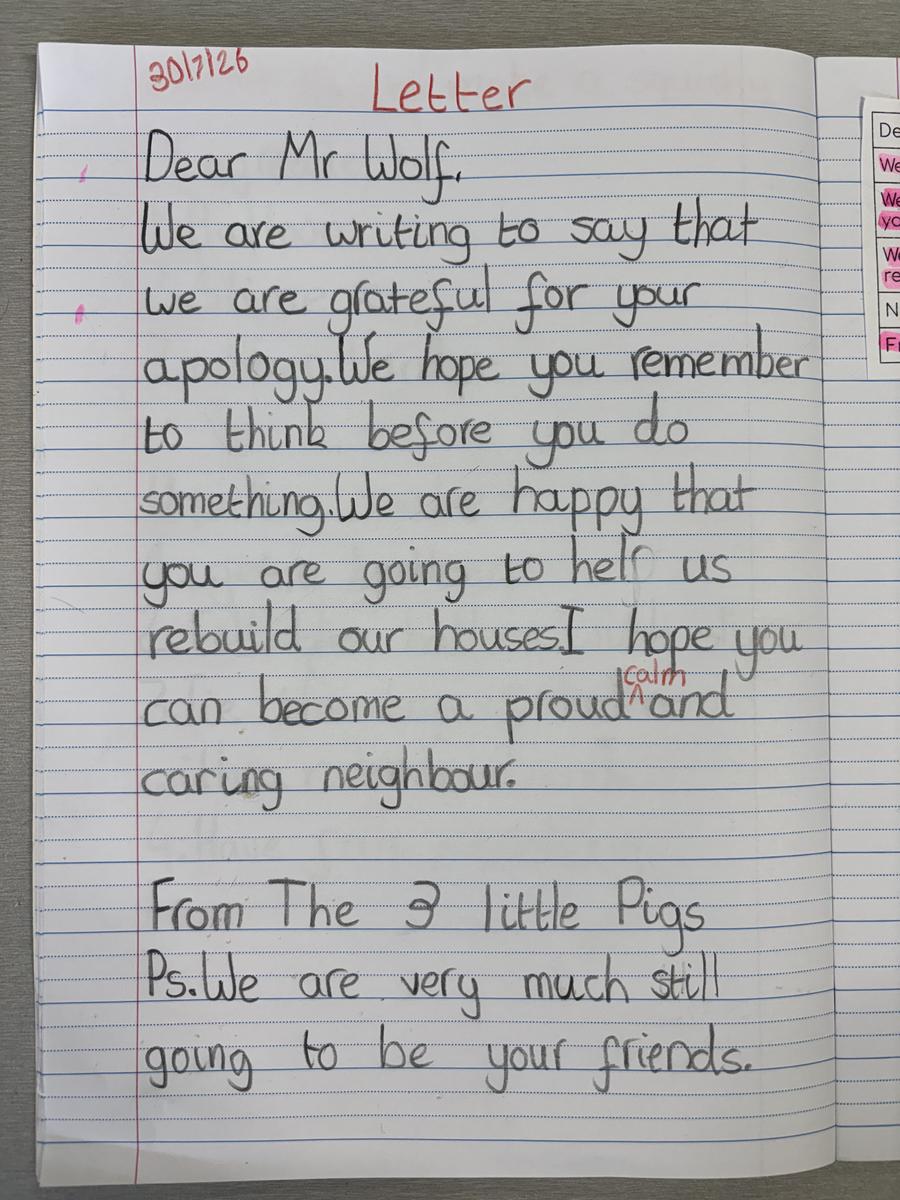 30/7/26
Letter
Dear Mr Wolf,
We are writing to say that
we are grateful for your
apology.We hope you remember
to think before you do
something.We are happy that
you are going to help us
rebuild our houses.I hope you
calm
can become a proud^and
caring neighbour.
From The 3 little Pigs
Ps.We are very much still
going to be your friends.
De
We
We
yo
We
re
N
Fr